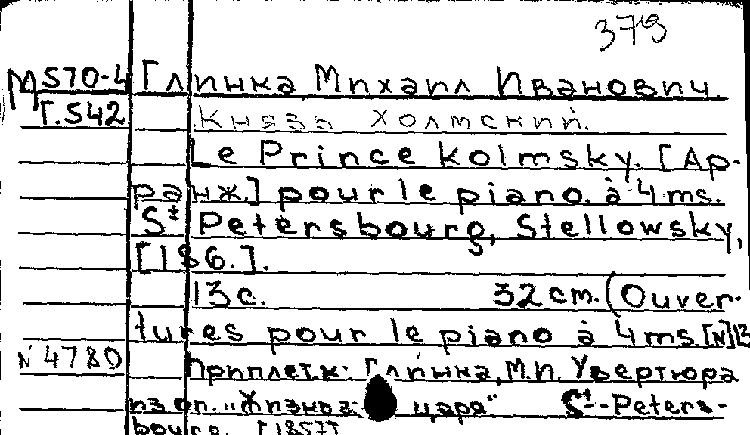 379
М 570-4 Глинка, Михаил Иванович.
Г.542 Князь Холмский.
Le Prince Kolmsky. [Ар-
ранж.] pour le piano. à 4 ms.
St Petersbourg, Stellowsky,
[186.].
13 с. 32 см. (Ouver-
tures pour le piano à 4 ms [N] 13
N 4780 Приплет. к: Глинка, М.И. Увертюра
из оп. „Жизнь за царя" St-Peters-
bourg. [185?]